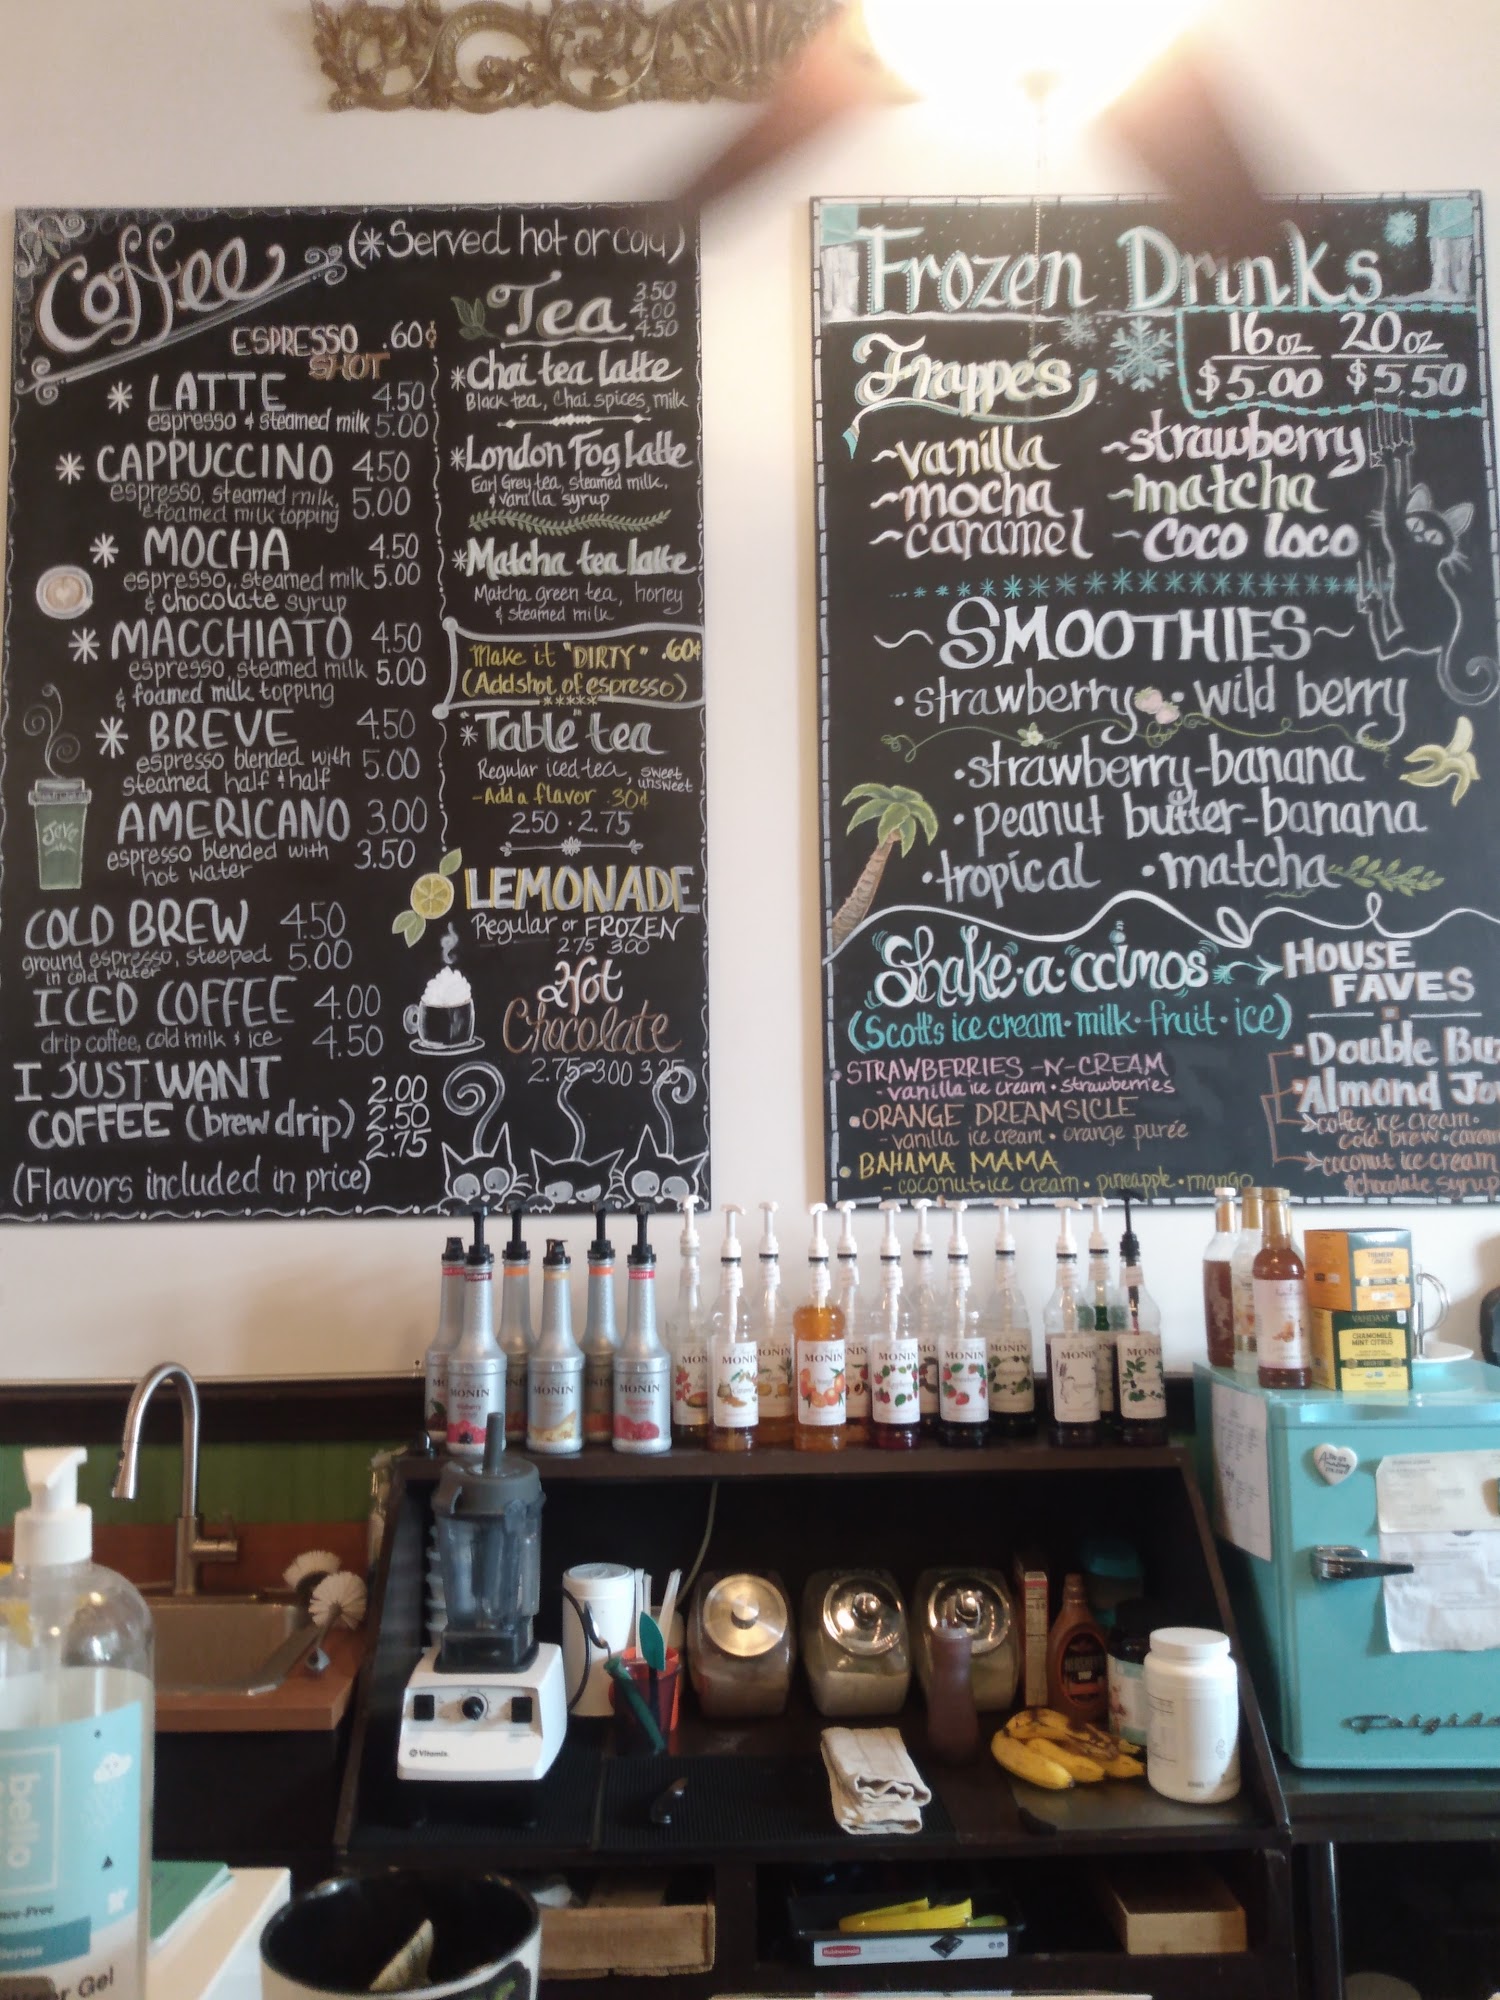 Coffee (*Served hot or cold)
ESPRESSO .60¢
SHOT
* LATTE 4.50
espresso & steamed milk 5.00
* CAPPUCCINO 4.50
espresso, steamed milk, 5.00
& foamed milk topping
* MOCHA 4.50
espresso, steamed milk 5.00
& chocolate syrup
* MACCHIATO 4.50
espresso, steamed milk 5.00
& foamed milk topping
* BREVE 4.50
espresso blended with 5.00
steamed half & half
AMERICANO 3.00
espresso blended with 3.50
hot water
Java
COLD BREW 4.50
ground espresso, steeped 5.00
in cold water
ICED COFFEE 4.00
drip coffee, cold milk & ice 4.50
I JUST WANT 2.00
COFFEE (brew drip) 2.50
2.75
(Flavors included in price)
Tea 3.50
4.00
4.50
*Chai tea latte
Black tea, Chai spices, milk
*London Fog Latte
Earl Grey tea, steamed milk,
& vanilla syrup
*Matcha tea latte
Matcha green tea, honey
& steamed milk
Make it "DIRTY" .60¢
(Add shot of espresso)
*****
*"Table" tea
Regular iced tea, sweet
unsweet
-Add a flavor .30¢
2.50 · 2.75
LEMONADE
Regular or FROZEN
2.75 3.00
Hot
Chocolate
2.75 3.00 3.25
Frozen Drinks
Frappés
16oz 20oz
$5.00 $5.50
~vanilla ~strawberry
~mocha ~matcha
~caramel ~coco loco
~SMOOTHIES~
·strawberry ·wild berry
·strawberry-banana
·peanut butter-banana
·tropical ·matcha
Shake·a·ccinos
(Scott's ice cream·milk·fruit·ice)
·STRAWBERRIES-N-CREAM
-vanilla ice cream·strawberries
·ORANGE DREAMSICLE
-vanilla ice cream·orange purée
·BAHAMA MAMA
-coconut·ice cream·pineapple·mango
HOUSE
FAVES
·Double Bu
·Almond Jo
coffee ice cream·
cold brew·caram
coconut ice cream
&chocolate syrup
MONIN
MONIN
MONIN
MON
MONIN
MONIN
MONIN
MONIN
MONIN
MONIN
MONIN
MONIN
VAHDAM
CHAMOMILE
MINT CITRUS
HERSHEY'S
Vitamix
Frigida
Rubbermaid
bello